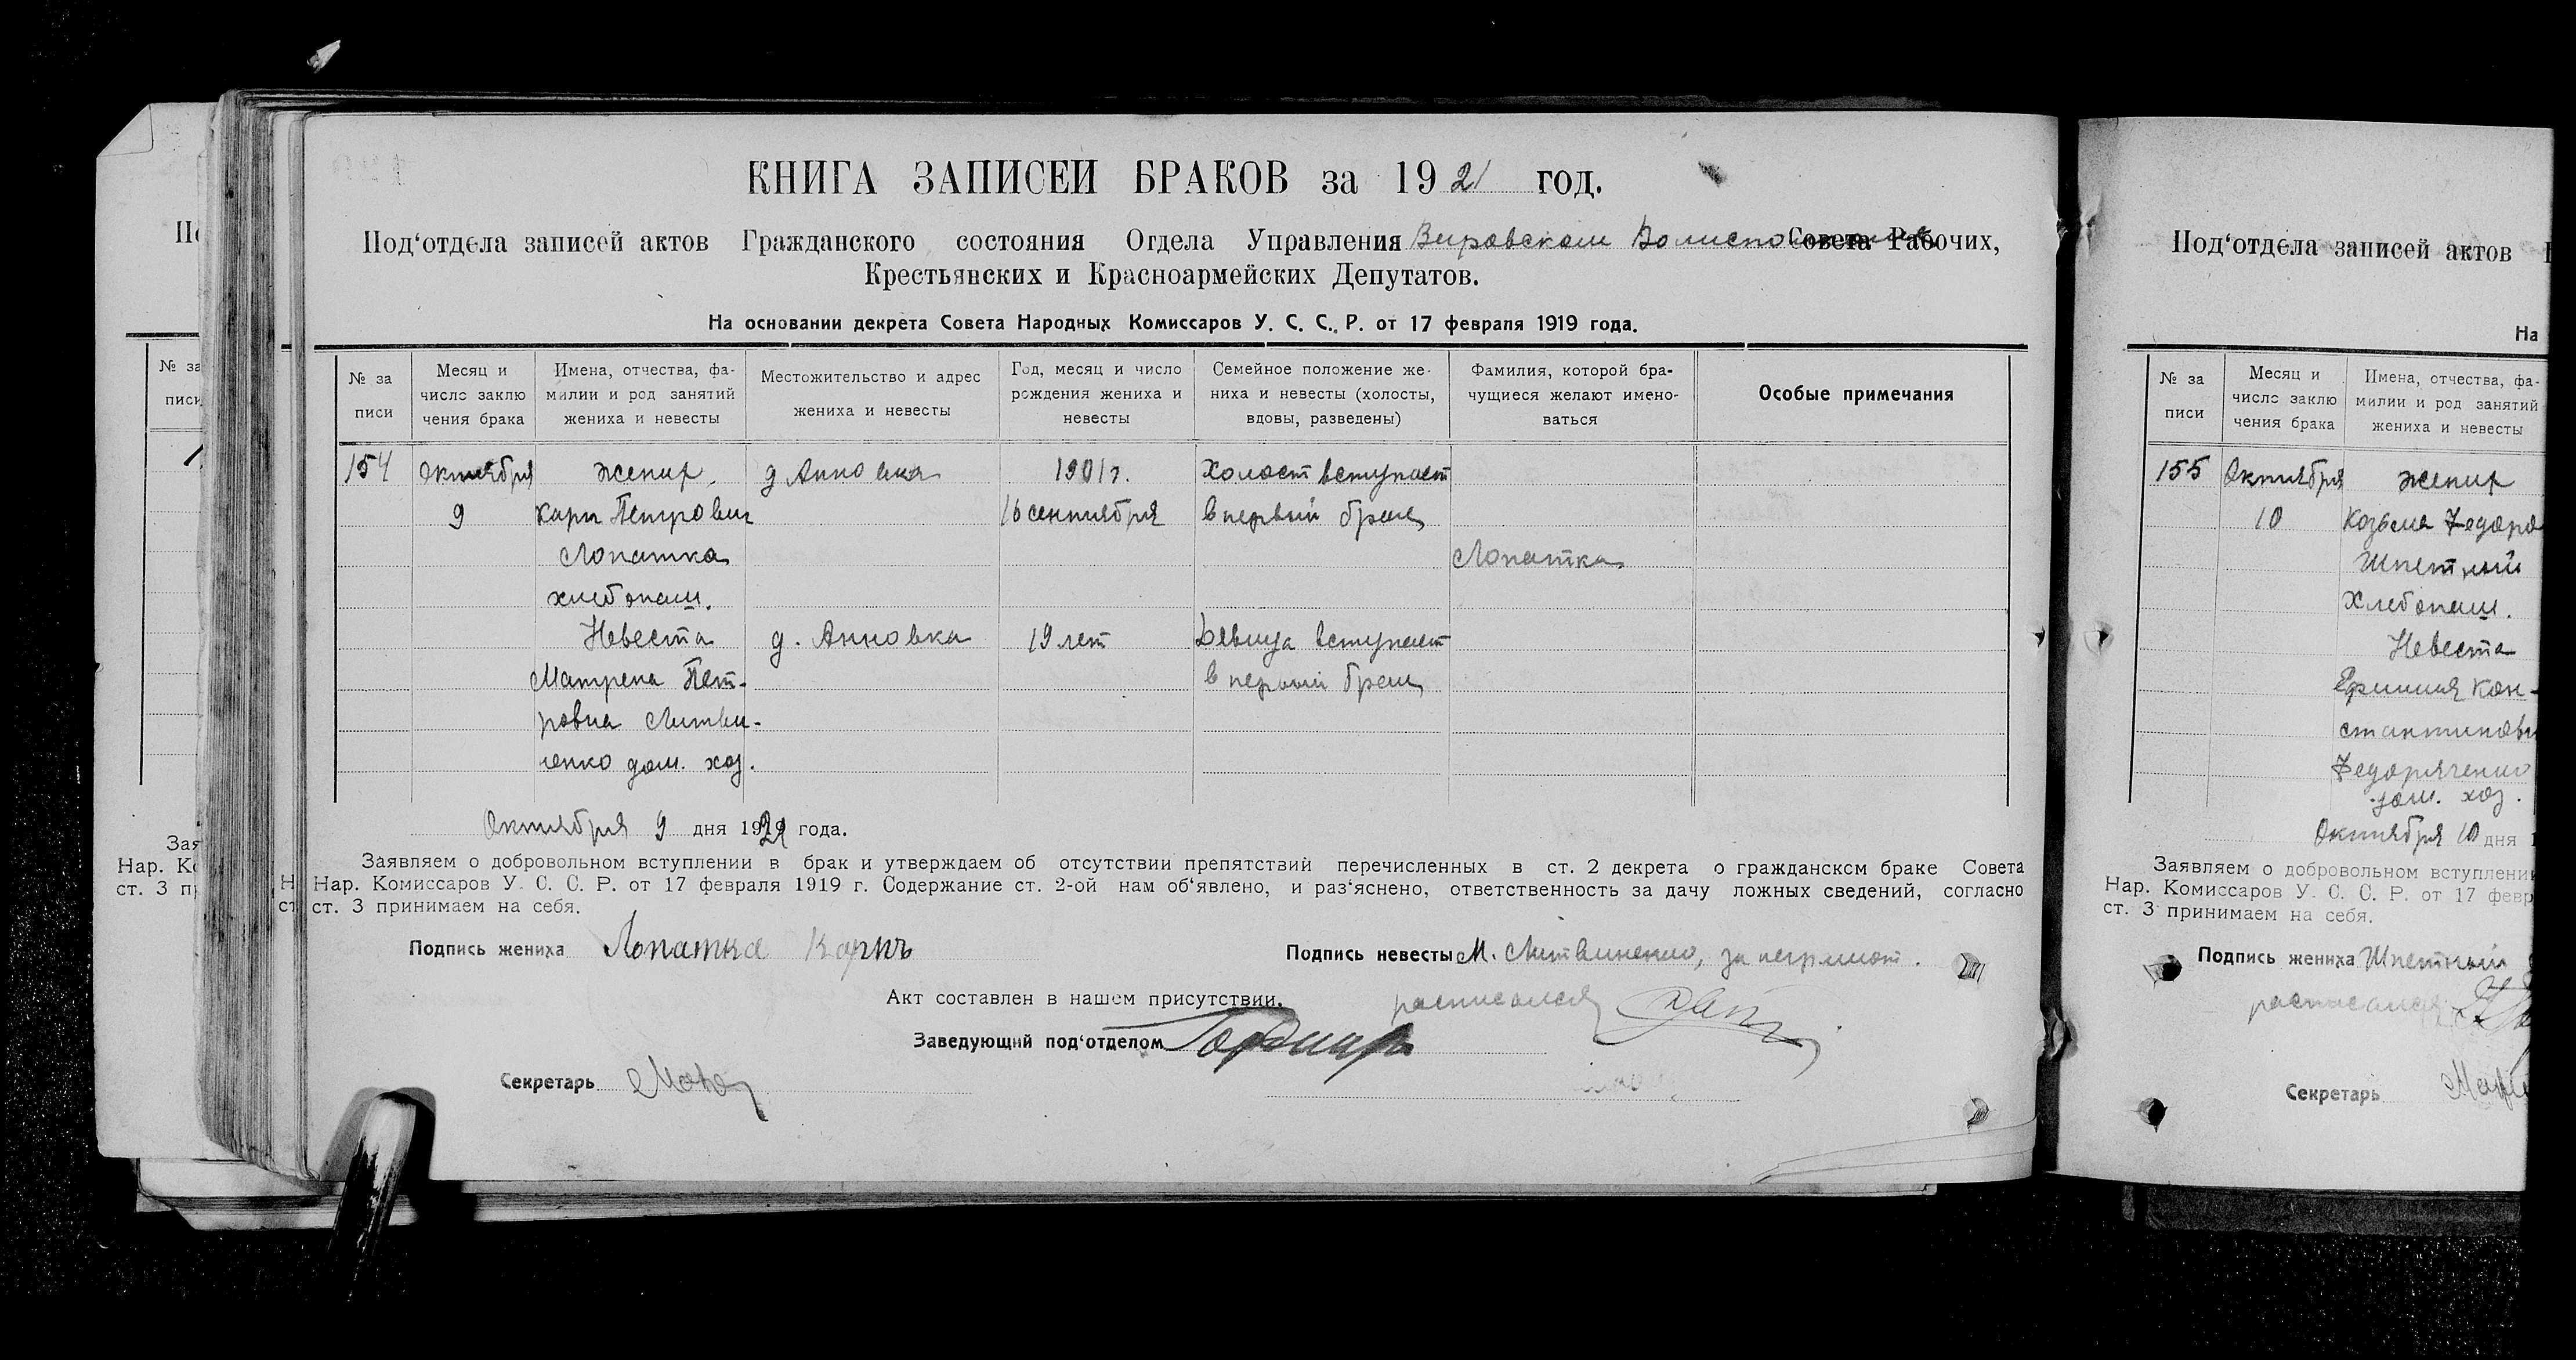 КНИГА ЗАПИСЕЙ БРАКОВ за 1921 год.
Под‘отдела записей актов Гражданского состояния Отдела Управления Вировском Совета Рабочих,
Крестьянских и Красноармейских Депутатов.
На основании декрета Совета Народных Комиссаров У. С. С. Р. от 17 февраля 1919 года.
№ за писи
Месяц и число заклю чения брака
Имена, отчества, фа- милии и род занятий жениха и невесты
Местожительство и адрес жениха и невесты
Год, месяц и число рождения жениха и невесты
Семейное положение же- ниха и невесты (холосты, вдовы, разведены)
Фамилия, которой бра- чущиеся желают имено- ваться
Особые примечания
154 Октября жених. д Анновка 1901 г. Холост вступает
9 Карп Петрович 16 сентября в первый брак
Лопатка Лопатка
хлебопаш.
Невеста д. Анновка 19 лет Девица вступает
Матрена Пет- в первый брак
ровна Литви-
ненко дом. хоз.
Октября 9 дня 1921 года.
Заявляем о добровольном вступлении в брак и утверждаем об отсутствии препятствий перечисленных в ст. 2 декрета о гражданском браке Совета
Нар. Комиссаров У. С. С. Р. от 17 февраля 1919 г. Содержание ст. 2-ой нам об‘явлено, и раз‘яснено, ответственность за дачу ложных сведений, согласно
ст. 3 принимаем на себя.
Подпись жениха Лопатка Карпъ
Подпись невесты М. Литвиненко, за неграмот.
расписался
Акт составлен в нашем присутствии.
Заведующий под‘отделом
Секретарь
Под‘отдела записей актов
На
№ за писи
Месяц и число заклю чения брака
Имена, отчества, фа- милии и род занятий жениха и невесты
155 Октября жених
10 Козьма Федоро
Шпетный
Хлебопаш.
Невеста
Ефимия Кон-
стантиновн
Федорченко
дом. хоз.
Октября 10 дня
Заявляем о добровольном вступлени
Нар. Комиссаров У. С. С. Р. от 17 февр
ст. 3 принимаем на себя.
Подпись жениха Шпетный
расписался
Секретарь
№ за
писи
Зая
Нар. Ко
ст. 3 п